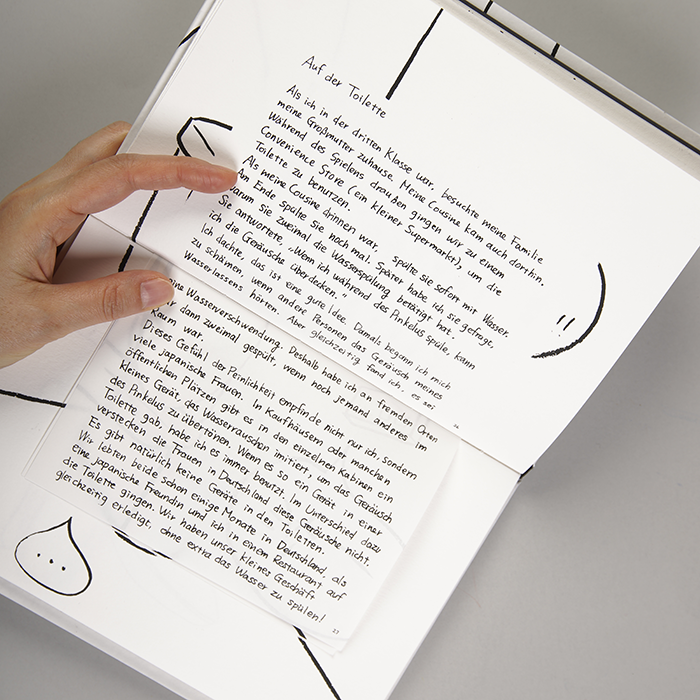 Auf der Toilette
Als ich in der dritten Klasse war, besuchte meine Familie
meine Großmutter zuhause. Meine Cousine kam auch dorthin.
Während des Spielens draußen gingen wir zu einem
Convenience Store (ein kleiner Supermarkt), um die
Toilette zu benutzen.
Als meine Cousine drinnen war, spülte sie sofort mit Wasser.
Am Ende spülte sie noch mal. Später habe ich sie gefragt,
warum sie zweimal die Wasserspülung betätigt hat.
Sie antwortete „Wenn ich während des Pinkelns spüle, kann
ich die Geräusche überdecken."
Ich dachte, das ist eine gute Idee. Damals begann ich mich
zu schämen, wenn andere Personen das Geräusch meines
Wasserlassens hörten. Aber gleichzeitig fand ich, es sei
26
eine Wasserverschwendung. Deshalb habe ich an fremden Orten
nur dann zweimal gespült, wenn noch jemand anderes im
Raum war.
Dieses Gefühl der Peinlichkeit empfinde nicht nur ich, sondern
viele japanische Frauen. In Kaufhäusern oder manchen
öffentlichen Plätzen gibt es in den einzelnen Kabinen ein
kleines Gerät, das Wasserrauschen imitiert, um das Geräusch
des Pinkelns zu übertönen. Wenn es so ein Gerät in einer
Toilette gab, habe ich es immer benutzt. Im Unterschied dazu
verstecken die Frauen in Deutschland diese Geräusche nicht.
Es gibt natürlich keine Geräte in den Toiletten.
Wir lebten beide schon einige Monate in Deutschland, als
eine japanische Freundin und ich in einem Restaurant auf
die Toilette gingen. Wir haben unser kleines Geschäft
gleichzeitig erledigt, ohne extra das Wasser zu spülen!
27